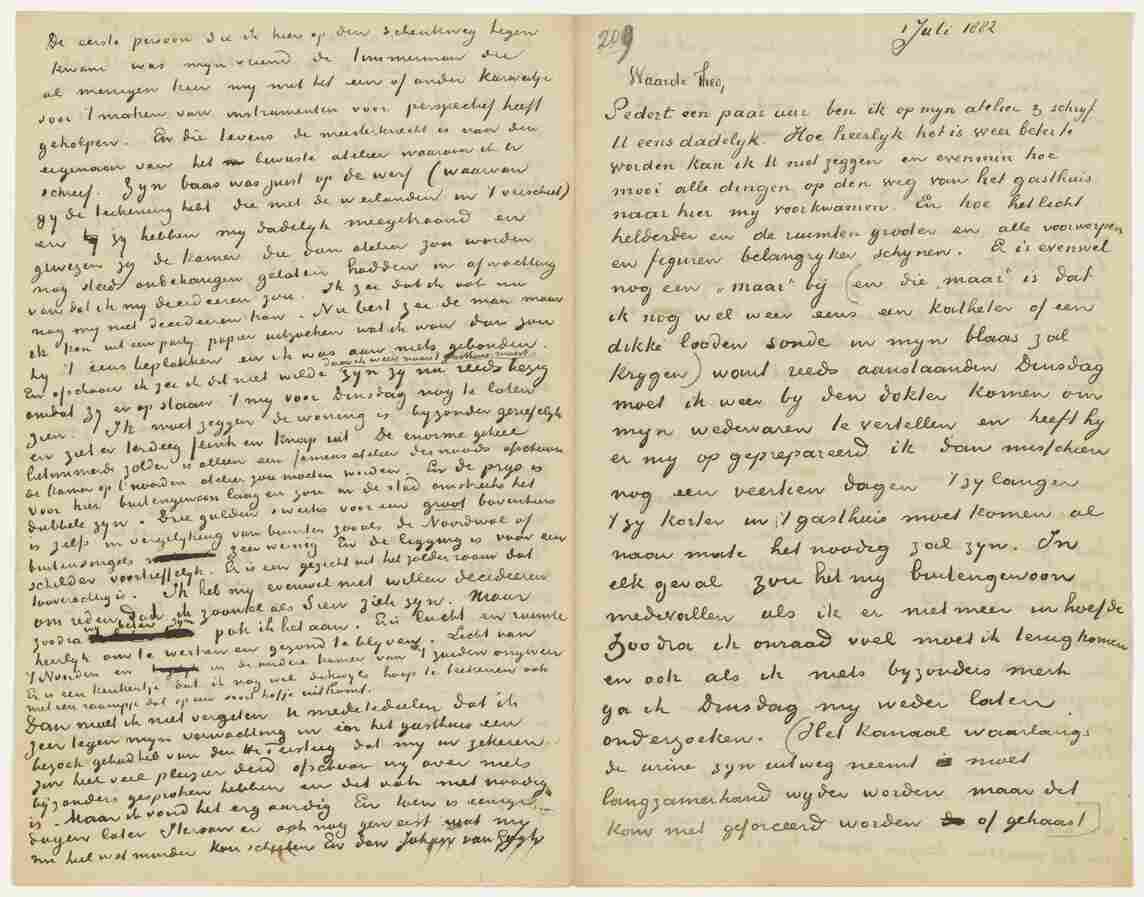 De eerste persoon die ik hier op den Schenkweg tegen
kwam was myn vriend de timmerman die
al menigen keer my met het een of ander karweitje
voor 't maken van instrumenten voor perspectief heeft
geholpen. En die tevens de meesterknecht is van den
eigenaar van het bewuste atelier waarvan ik U
schreef. Zyn baas was juist op de werf (waarvan
gy de teekening hebt die met de weilanden in 't verschiet)
en zy hebben my dadelyk meegetroond en
gewezen zy de kamer die dan atelier zou worden
nog steeds onbehangen gelaten hadden in afwachting
van dat ik my decideeren zou. Ik zei dat ik ook nu
nog my niet decideeren kon. Nu best zei de man maar
ik kon uit een party papier uitzoeken wat ik won dan zou
hy 't eens beplakken en ik was aan niets gebonden.
En ofschoon ik zei ik dit niet wilde zyn zy nu reeds bezig
omdat zy er op staan 't my voor Dinsdag nog te laten
zien. Ik moet zeggen de woning is byzonder geriefelyk
en ziet er terdeeg flink en knap uit. De enorme geheel
betimmerde zolder is alleen een fameus atelier desnoods ofschoon
de kamer op 't noorden atelier zou moeten worden. En de prys is
voor hier buitengewoon laag en zou in de stad omstreeks het
dubbele zyn. Drie gulden sweeks voor een groot bovenhuis
is zelfs in vergelyking van buurten zooals de Noordwal of
buitensingels zeer weinig En de ligging is voor een
schilder voortreffelyk. Er is een gezicht uit het zolderraam dat
tooverachtig is. Ik heb my evenwel niet willen decideeren
om reden dat ik zoowel als Sien ziek zyn. Maar
zoodra wy beter zyn pak ik het aan. Er is lucht en ruimte
heerlyk om te werken en gezond te blyven. Licht van
't Noorden en in de andere kamer van 't zuiden ongeveer
Er is een keukentje dat ik nog wel dikwyls hoop te teekenen ook
met een raampje dat op een soort hofje uitkomt.
Dan moet ik niet vergeten U medetedeelen dat ik
zeer tegen myn verwachting in in het gasthuis een
bezoek gehad heb van den Hr Tersteeg dat my in zekeren
zin heel veel pleizier deed ofschoon wy over niets
byzonders gesproken hebben en dit ook niet noodig
is. Maar ik vond het erg aardig En toen is eenige
dagen later Iterson er ook nog geweest wat my
nu heel wat minder kon schelen En dan Johan van Gogh
209
1 Juli 1882
Waarde Theo,
Sedert een paar uur ben ik op myn atelier & schryf
U eens dadelyk. Hoe heerlyk het is weer beter te
worden kan ik U niet zeggen en evenmin hoe
mooi alle dingen op den weg van het gasthuis
naar hier my voorkwamen. En hoe het licht
helderder en de ruimten grooter en alle voorwerpen
en figuren belangryker schynen. Er is evenwel
nog een „maar" bij (en die „maar" is dat
ik nog wel weer eens een katheter of een
dikke looden sonde in myn blaas zal
krygen) want reeds aanstaanden Dinsdag
moet ik weer by den dokter komen om
myn wedervaren te vertellen en heeft hy
er my op geprepareerd ik dan misschien
nog een veertien dagen 't zy langer
't zy korter in 't gasthuis moet komen al
naar mate het noodig zal zyn. In
elk geval zou het my buitengewoon
medevallen als ik er niet meer in hoefde
Zoodra ik onraad voel moet ik terug komen
en ook als ik niets byzonders merk
ga ik Dinsdag my weder laten
onderzoeken. (Het kanaal waarlangs
de urine zyn uitweg neemt moet
langzamerhand wyder worden maar dit
kan niet geforceerd worden of gehaast)